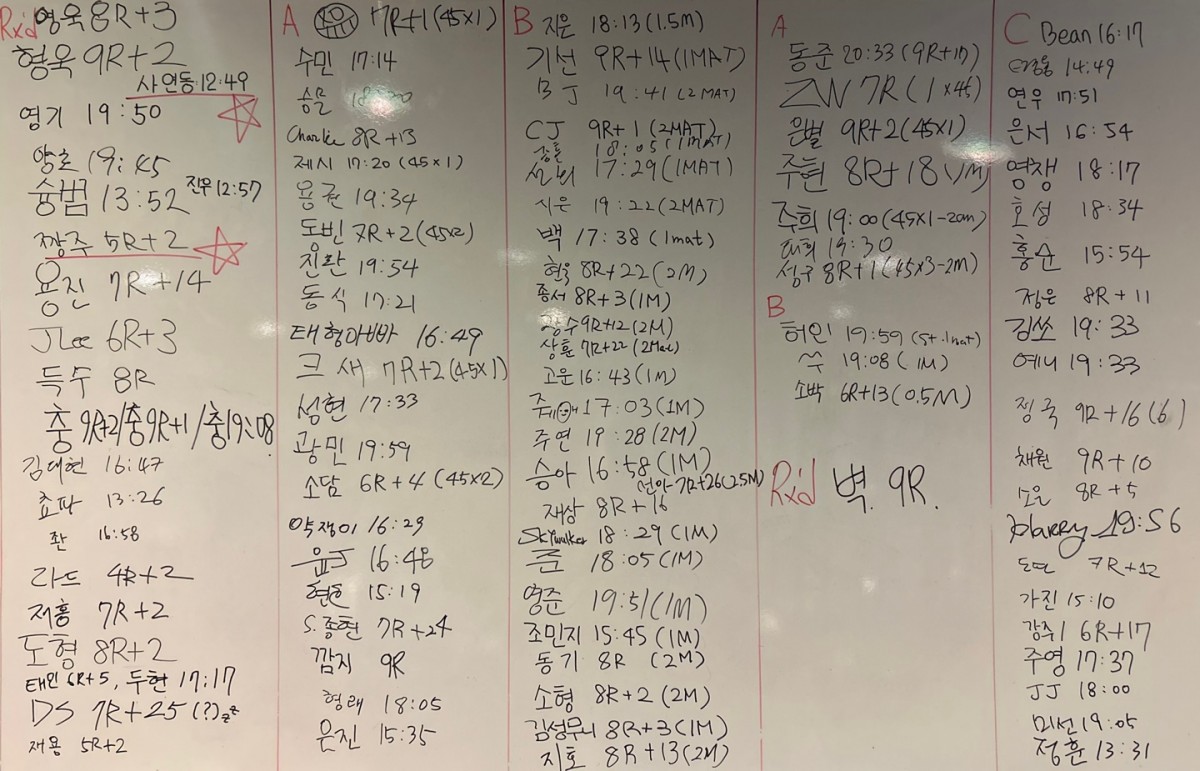 Rxd 영욱 8R+3
형욱 9R+2
사연동 12:49
영기 19:50
양초 19:45
슝범 13:52 진우 12:57
짱주 5R+2
용진 7R+14
JLee 6R+3
득수 8R
충 9R+2/충 9R+1/충 19:08
김대현 16:47
쵸파 13:26
좐 16:58
라드 4R+2
저홍 7R+2
도형 8R+2
태인 6R+5, 두현 17:17
DS 7R+25 (?) zz
재용 5R+2
A 7R+1 (45x1)
수민 17:14
승물
Charlie 8R+13
제시 17:20 (45x1)
용권 19:34
도빈 7R+2 (45x2)
진완 19:54
동식 17:21
태형아빠 16:49
크새 7R+2 (45x1)
성현 17:33
광민 19:59
소담 6R+4 (45x2)
약쟁이 16:29
윤J 16:48
현호 15:19
S.종현 7R+24
깜지 9R
형래 18:05
은진 15:35
B 지은 18:13 (1.5m)
기선 9R+14 (1MAT)
BJ 19:41 (2MAT)
CJ 9R+1 (2MAT)
18:05 (1MAT)
17:29 (1MAT)
시은 19:22 (2MAT)
백 17:38 (1mat)
현욱 8R+22 (2M)
종서 8R+3 (1M)
광수 9R+12 (2M)
상훈 7R+22 (2Mat)
고운 16:43 (1M)
17:03 (1M)
주연 19:28 (2M)
승아 16:58 (1M)
선아 7R+26 (2.5M)
재상 8R+16
Skywalker 18:29 (1M)
준 18:05 (1M)
영준 19:51 (1M)
조민지 15:45 (1M)
동기 8R (2M)
소형 8R+2 (2M)
김성무니 8R+3 (1M)
지호 8R+13 (2M)
A
동준 20:33 (9R+17)
ZW 7R (1x45)
은별 9R+2 (45x1)
주현 8R+18 (1M)
주희 19:00 (45x1-20m)
대희 19:30
성구 8R+1 (45x3-2M)
B
허인 19:59 (5+.1mat)
쑤 19:08 (1M)
소박 6R+13 (0.5M)
Rxd 벽. 9R.
C Bean 16:17
14:49
연우 17:51
은서 16:54
영쟁 18:17
호성 18:34
홍순 15:54
정은 8R+11
김쏘 19:33
예니 19:33
정국 9R+16 (6)
채원 9R+10
8R+5
Harry 19:56
도연 7R+12
가진 15:10
강주1 6R+17
주영 17:37
JJ 18:00
미선 19:05
정훈 13:31